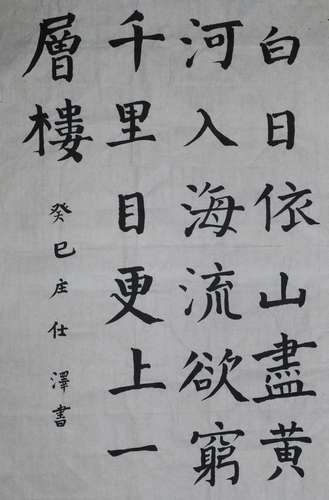 白日依山盡黄
河入海流欲窮
千里目更上一
層樓
癸巳庄仕澤書